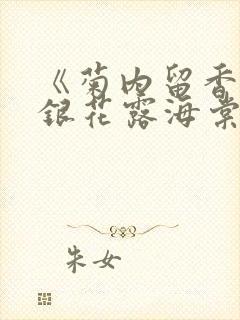 《菊内留香
银花露海棠
朱女